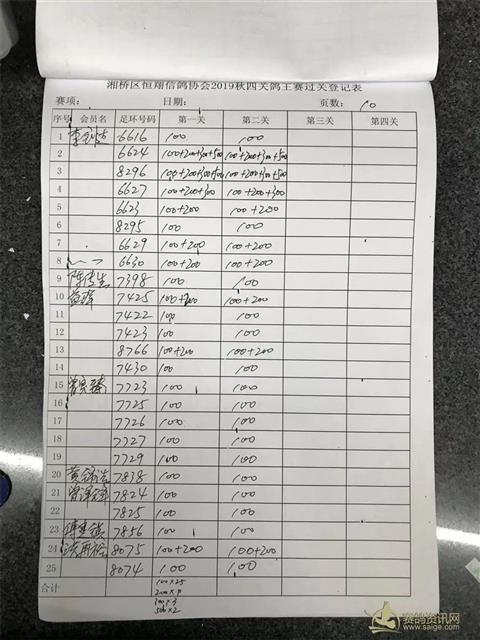 湘桥区恒翔信鸽协会2019秋四关鸽王赛过关登记表
赛项： 日期： 页数： 10
序号 会员名 足环号码 第一关 第二关 第三关 第四关
1 6616 100 100
2 6624 100+200+300+500 100+200+300+500
3 8296 100+200+300+500 100+200+300+500
4 6627 100+200+300 100+200+300
5 6623 100+200 100+200
6 8295 100 100
7 6629 100+200 100+200
8 6630 100+200 100+200
9 7398 100 100
10 7425 100+200 100+200
11 7422 100 100
12 7423 100 100
13 8766 100+200 100+200
14 7430 100 100
15 7723 100 100
16 7725 100 100
17 7726 100 100
18 7727 100 100
19 7729 100 100
20 7838 100 100
21 7824 100 100
22 7825 100 100
23 7856 100 100
24 8075 100+200 100+200
25 8074 100 100
合计 100×25
200×9
300×3
500×2
赛鸽资讯网
www.saige.com